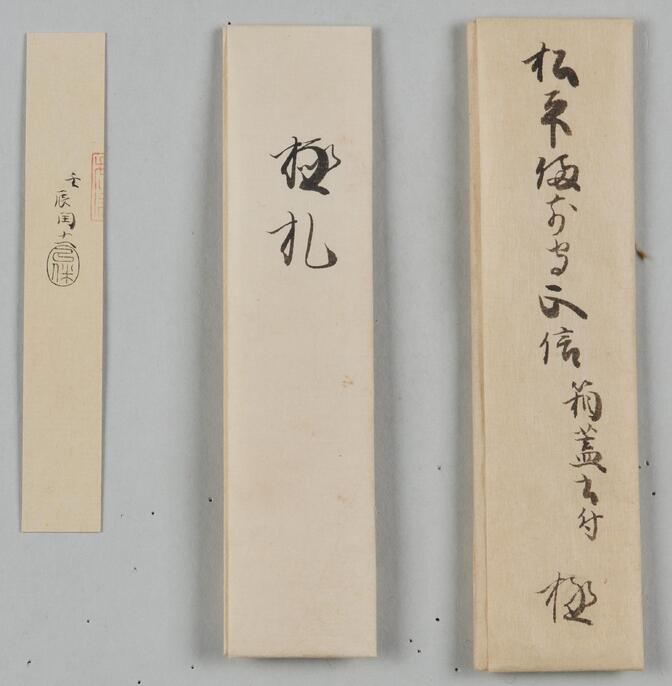 松平備前守正信
箱蓋書付
極
極札
壬辰閏十